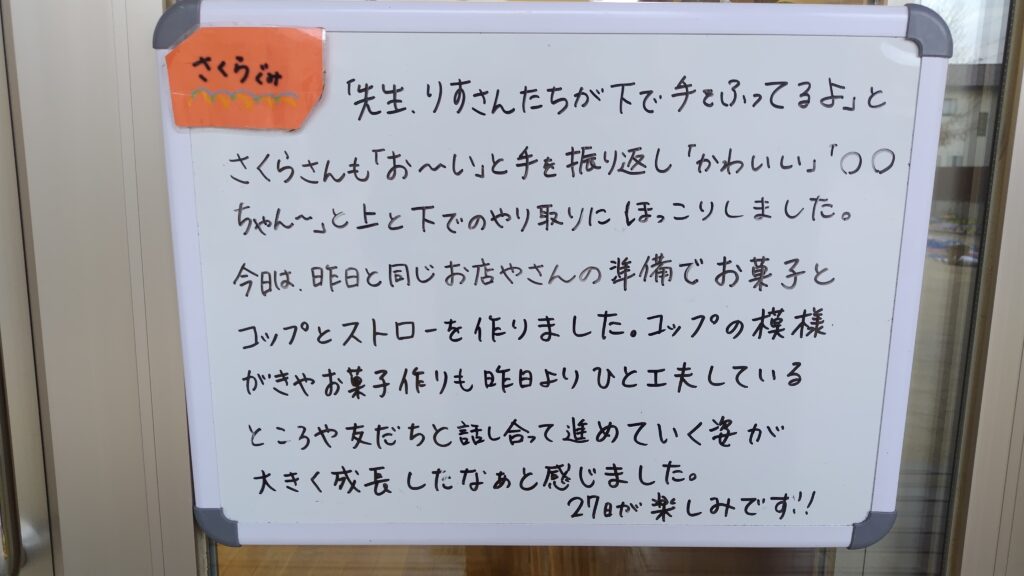 さくらぐみ
「先生、りすさんたちが下で手をふってるよ」と
さくらさんも「お〜い」と手を振り返し「かわいい」「○○
ちゃん〜」と上と下でのやり取りにほっこりしました。
今日は、昨日と同じお店やさんの準備でお菓子と
コップとストローを作りました。コップの模様
がきやお菓子作りも昨日よりひと工夫している
ところや友だちと話し合って進めていく姿が
大きく成長したなぁと感じました。
27日が楽しみです!!